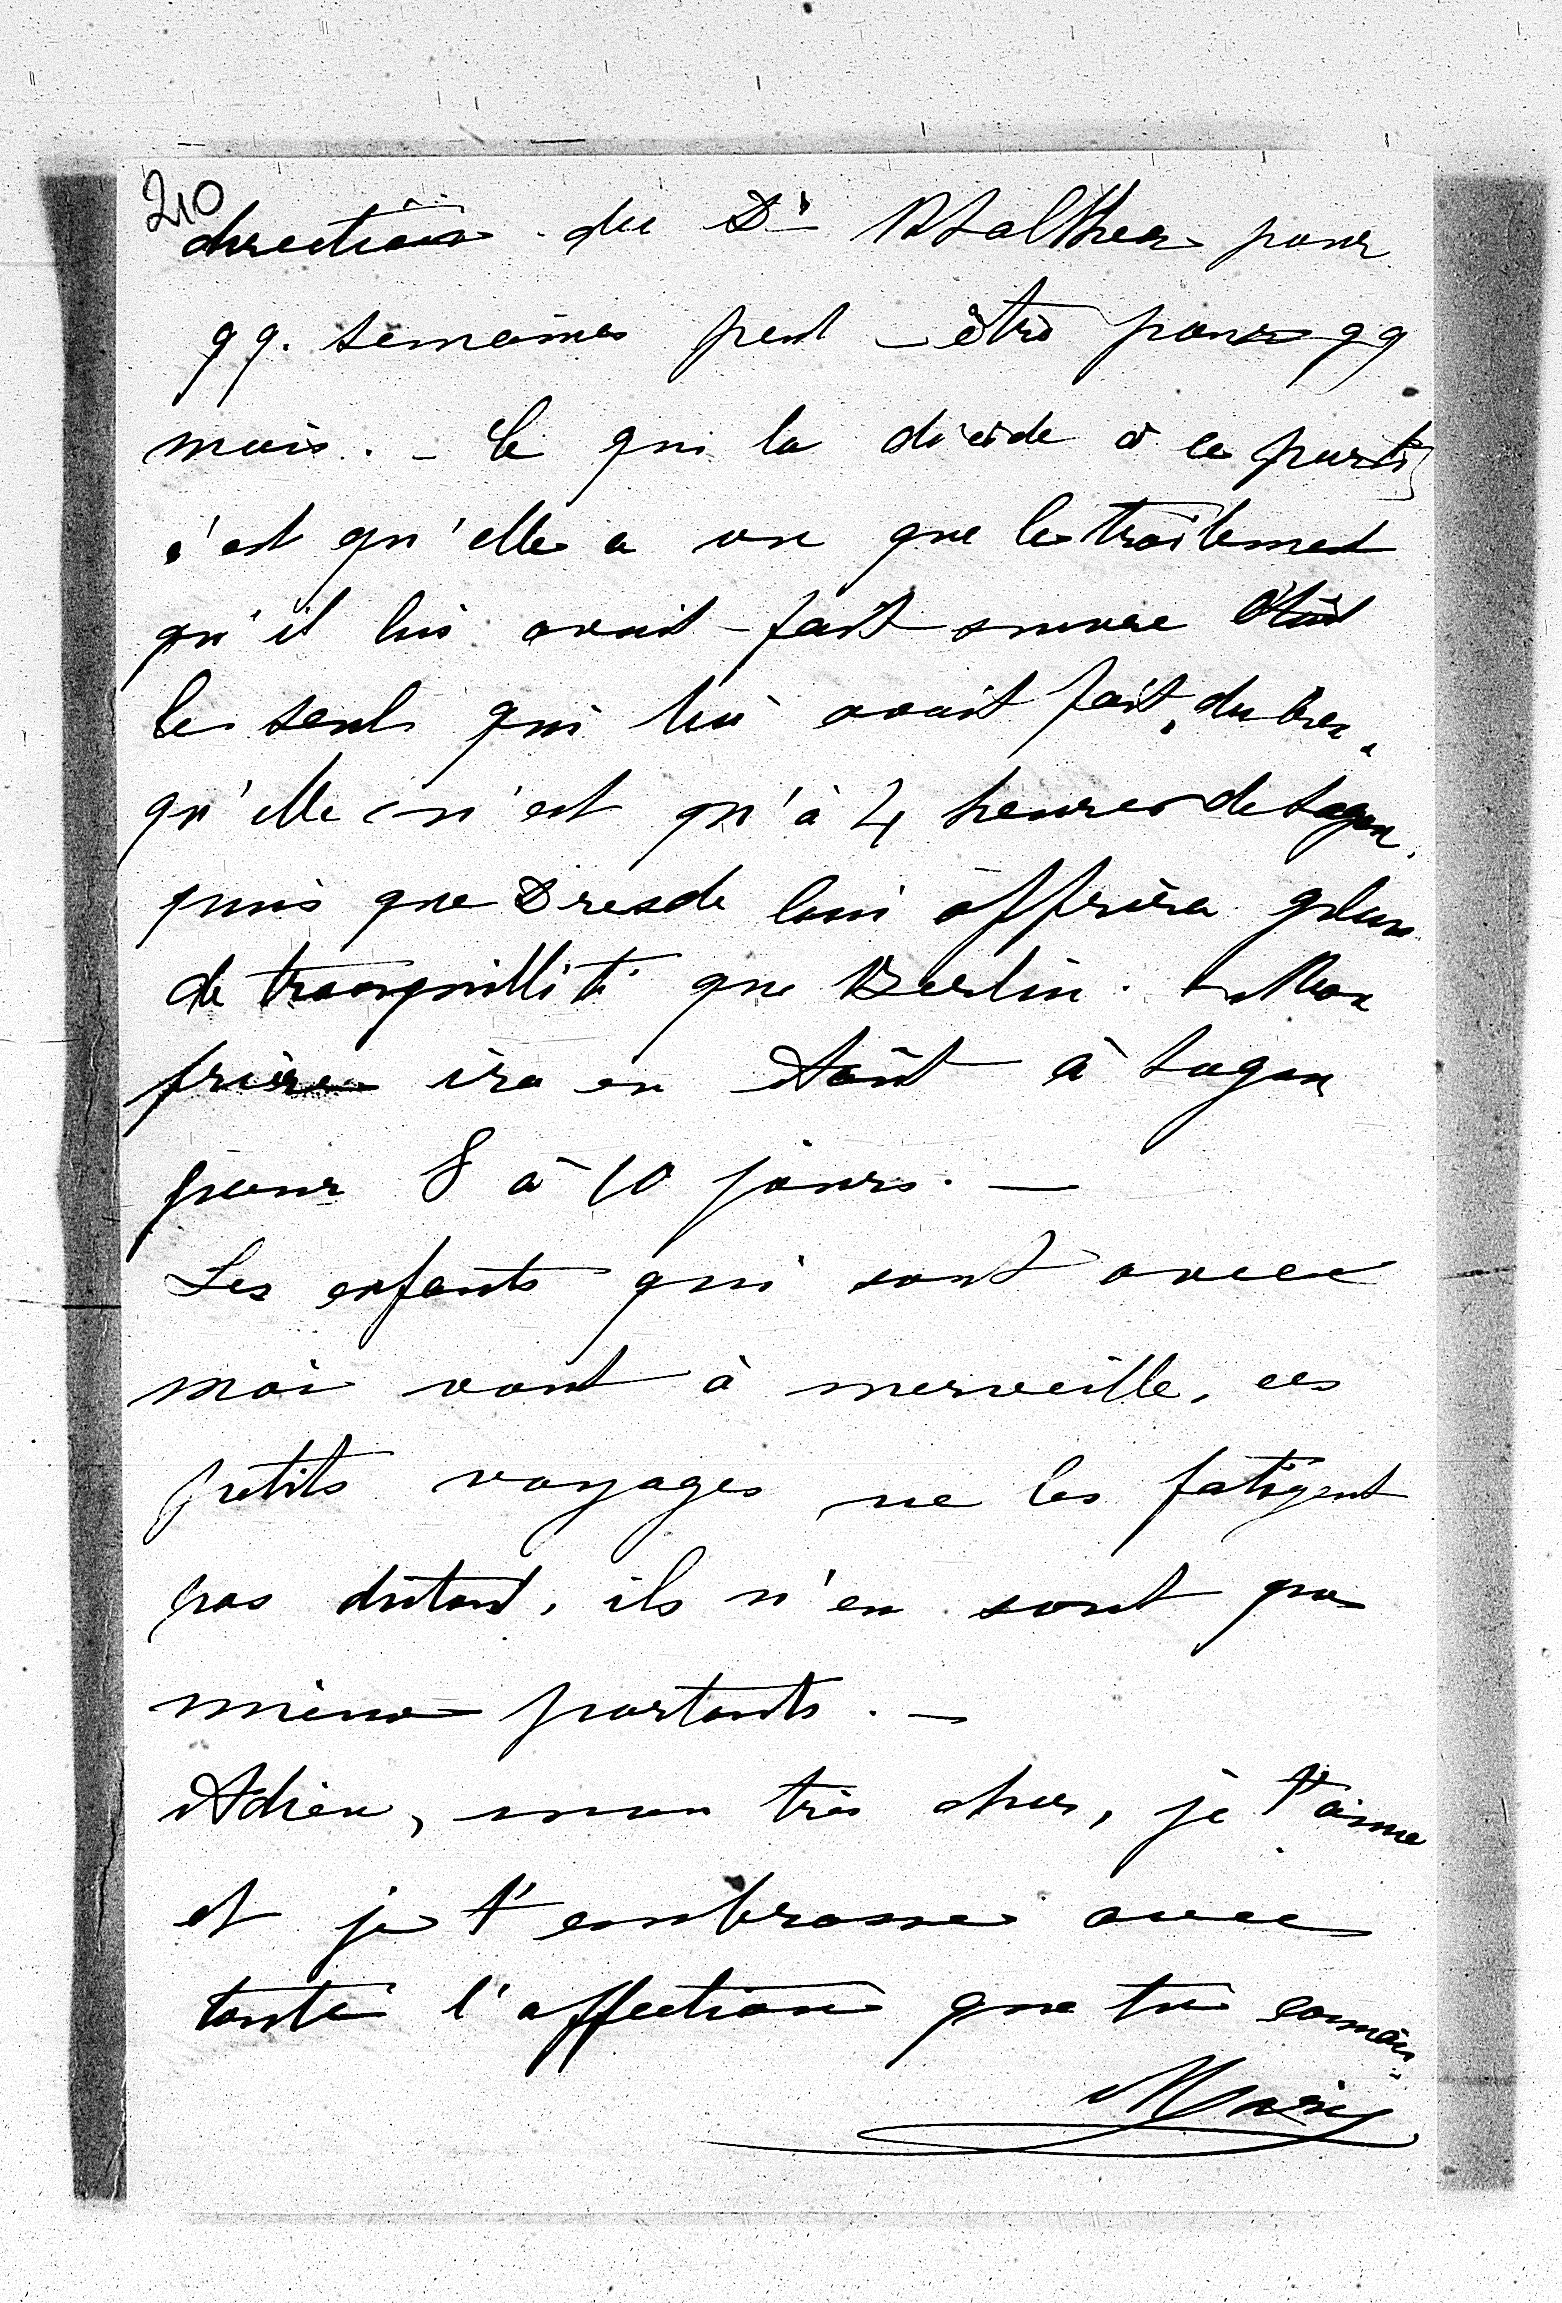 210
direction du Dr Walther pour
qq. semaines peut-être pour qq
mois. - Ce qui la décide à ce parti,
c'est qu'elle a vu que le traitement
qu'il lui avait fait suivre était
le seul qui lui avait fait du bien,
qu'elle n'est qu'à 4 heures de Sagan,
puis que Dresde lui offrira plus
de tranquillité que Berlin. - Mon
frère ira en Août à Sagan
pour 8 à 10 jours. -
Les enfants qui sont avec
moi vont à merveille, ces
petits voyages ne les fatigent
pas dutout, ils n'en sont que
mieux portants. -
Adieu, mon très cher, je t'aime
et je t'embrasse avec
toute l'affection que tu connais.
Marie